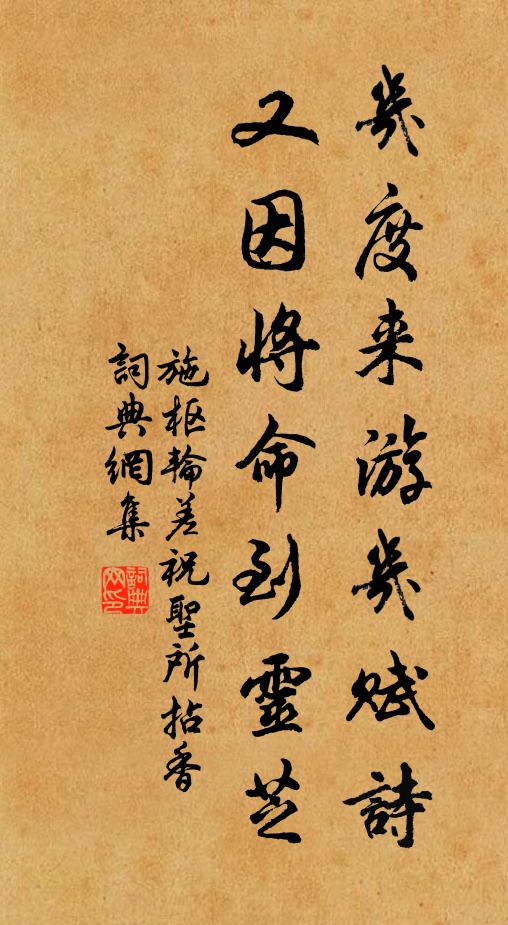 幾度来游幾賦詩
又因將命到靈芝
施枢輪差祝聖所拈香
詞典網集
詞典
网印